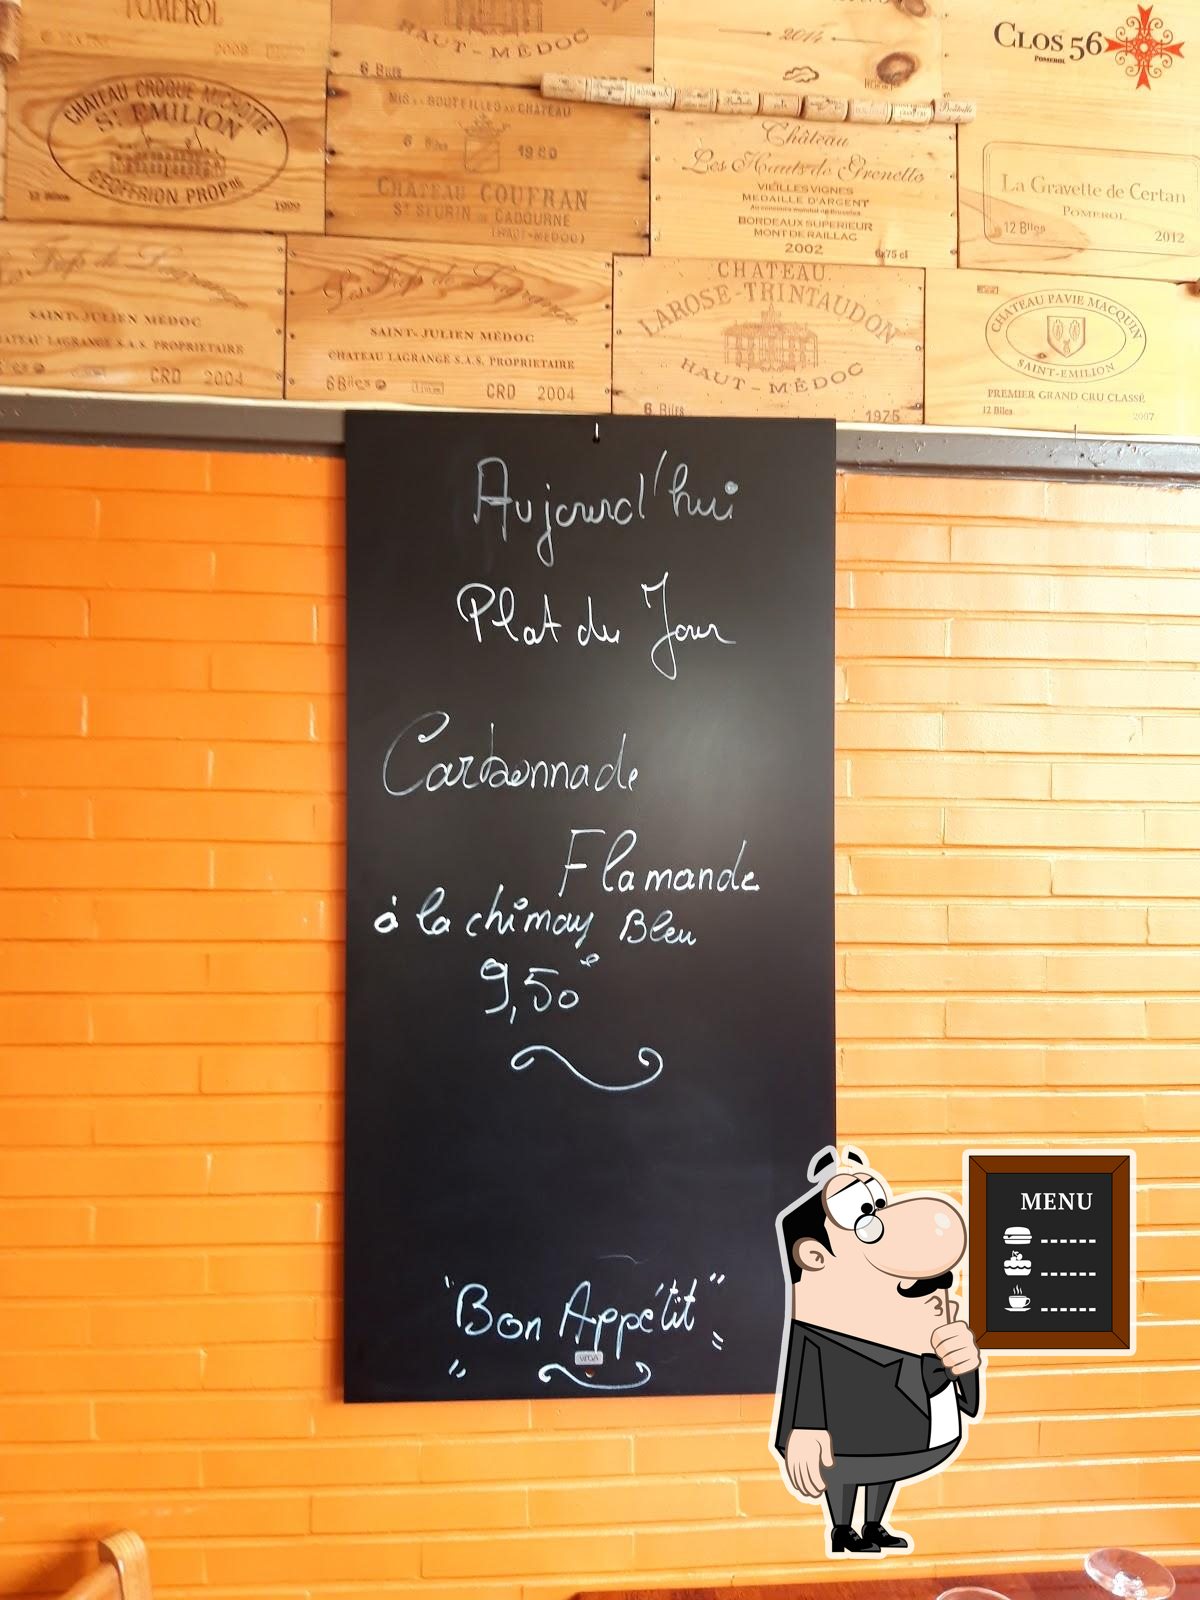 POMEROL
2008
HAUT-MÉDOC
6 Blles
2014
CLOS 56
POMEROL
CHATEAU CROQUE MICHOTTE
St EMILION
GEOFFRION PROPre
12 Blles
1999
MIS EN BOUTEILLES AU CHÂTEAU
6 Blles
CHATEAU COUFRAN
St SEURIN DE CADOURNE
(HAUT-MÉDOC)
Château
Les Hauts de Grenette
VIEILLES VIGNES
MEDAILLE D'ARGENT
Au concours mondial de Bruxelles
BORDEAUX SUPERIEUR
MONT DE RAILLAC
2002
6x75 cl
La Gravette de Certan
POMEROL
12 Blles
2012
SAINT-JULIEN MÉDOC
CHATEAU LAGRANGE S.A.S. PROPRIETAIRE
CRD 2004
SAINT-JULIEN MÉDOC
CHATEAU LAGRANGE S.A.S. PROPRIETAIRE
6 Blles
CRD 2004
CHATEAU
LAROSE-TRINTAUDON
HAUT-MÉDOC
6 Blles
1975
CHATEAU PAVIE MACQUIN
SAINT-EMILION
PREMIER GRAND CRU CLASSÉ
12 Blles
2007
Aujourd'hui
Plat du Jour
Carbonnade
Flamande
à la chimay Bleu
9,50€
"Bon Appétit"
MENU